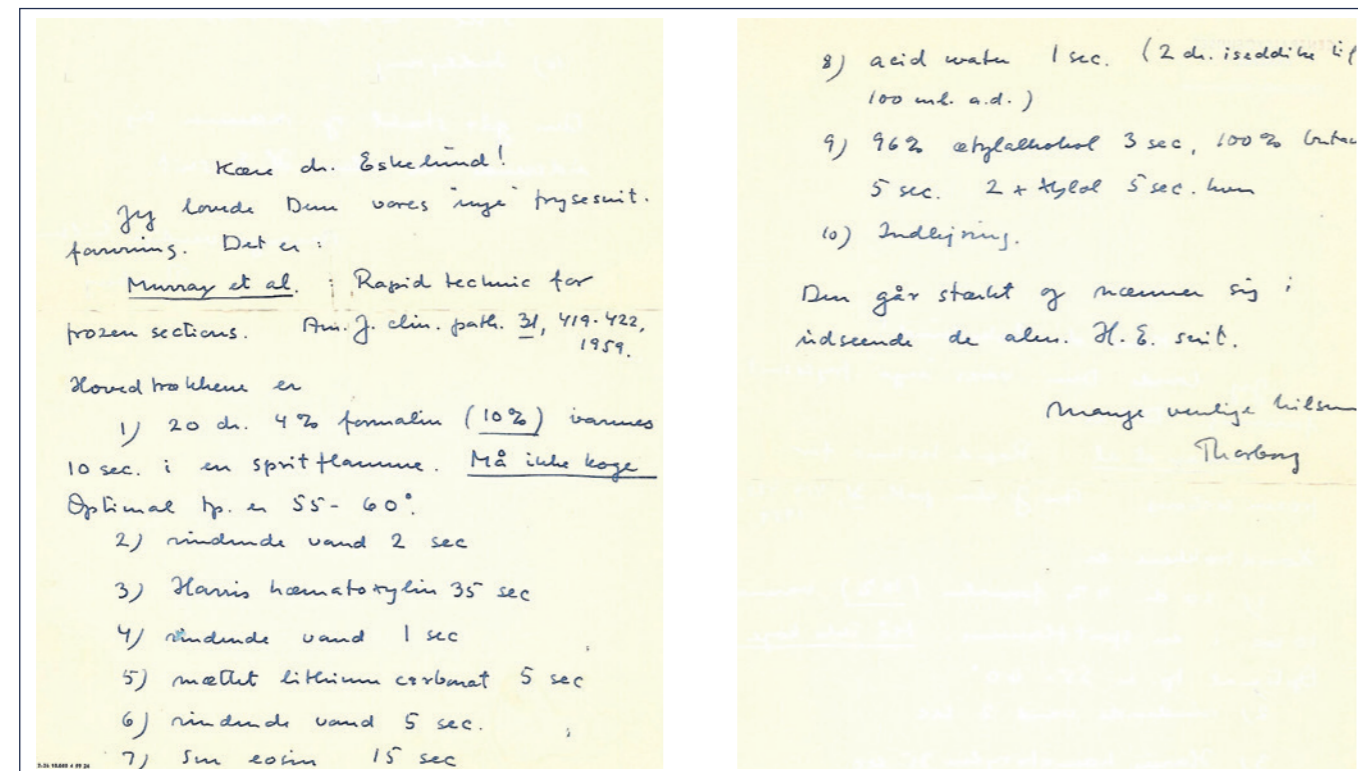 Kære dr. Eskelund!
Jeg lovede Dem vores "nye" frysesnit.
farvning. Det er :
Murray et al. : Rapid technic for
frozen sections. Am. J. clin. path. 31, 419-422,
1959.
Hovedtrækkene er
1) 20 dr. 4% formalin (10%) varmes
10 sec. i en spritflamme. Må ikke koge
Optimal tp. er 55-60°.
2) rindende vand 2 sec
3) Harris hæmatoxylin 35 sec
4) rindende vand 1 sec
5) mættet lithium carbonat 5 sec
6) rindende vand 5 sec.
7) eosin 15 sec
8) acid water 1 sec. (2 dr. iseddike til
100 ml. a.d.)
9) 96% ætylalkohol 3 sec, 100%
5 sec. 2 x Xylol 5 sec. hver
10) Indlejring.
Den går stærkt og nærmer sig i
udseende de alm. H.E. snit.
Mange venlige hilsner
Thorborg